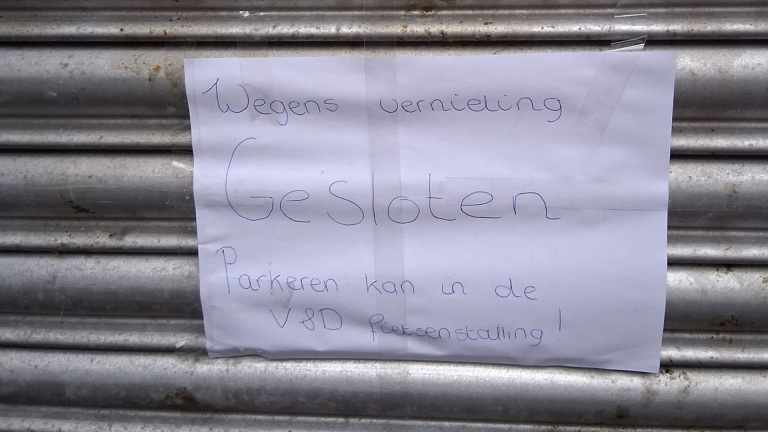 Wegens vernieling
Gesloten
Parkeren kan in de
V&D fietsenstalling!